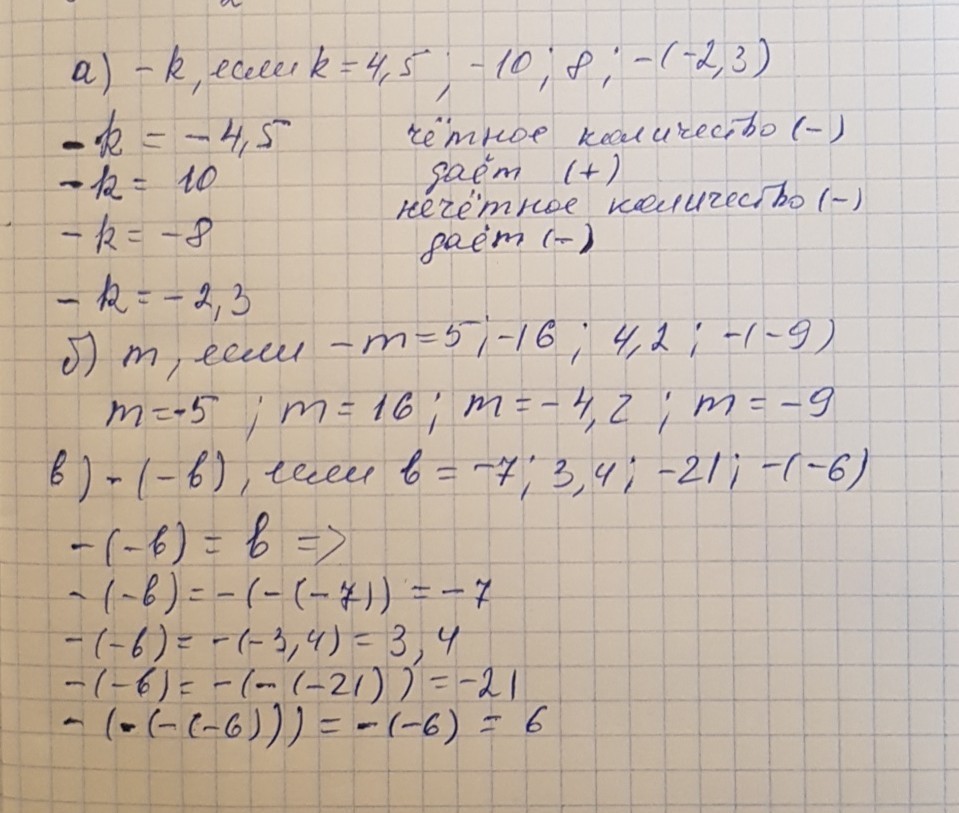 а) -k, если k = 4,5 ; -10 ; 8 ; -(-2,3)
-k = -4,5 чётное количество (-)
-k = 10 даёт (+)
нечётное количество (-)
-k = -8 даёт (-)
-k = -2,3
б) m, если -m = 5 ; -16 ; 4,2 ; -(-9)
m = -5 ; m = 16 ; m = -4,2 ; m = -9
в) -(-b), если b = -7 ; 3,4 ; -21 ; -(-6)
-(-b) = b =>
-(-b) = -(-(-7)) = -7
-(-b) = -(-3,4) = 3,4
-(-b) = -(-(-21)) = -21
-(-(-(-6))) = -(-6) = 6